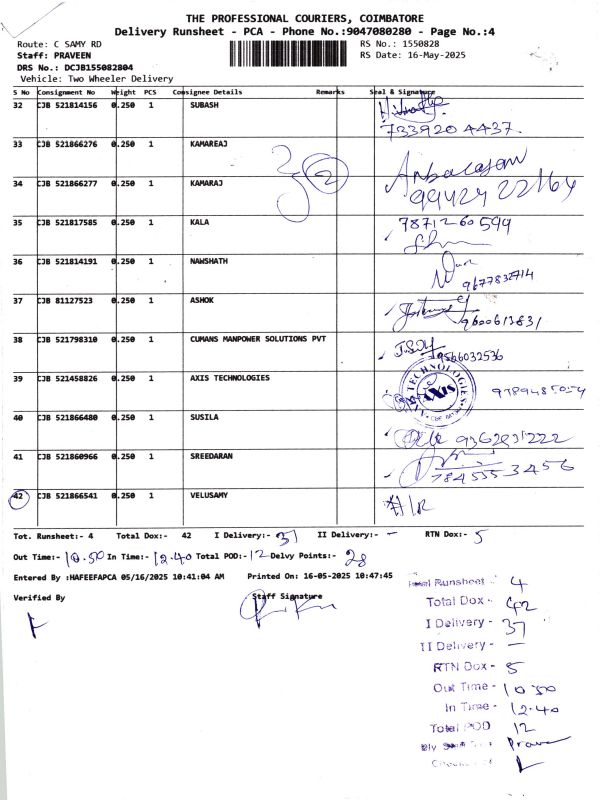 THE PROFESSIONAL COURIERS, COIMBATORE
Delivery Runsheet - PCA - Phone No.:9047080280 - Page No.:4
Route: C SAMY RD
RS No.: 1550828
Staff: PRAVEEN
RS Date: 16-May-2025
DRS No.: DCJB155082804
Vehicle: Two Wheeler Delivery
S No Consignment No Weight PCS Consignee Details Remarks Seal & Signature
32 CJB 521814156 0.250 1 SUBASH
7339204437
33 CJB 521866276 0.250 1 KAMAREAJ
2 Anbarasan
34 CJB 521866277 0.250 1 KAMARAJ 9942422164
35 CJB 521817585 0.250 1 KALA 7871260599
36 CJB 521814191 0.250 1 NAWSHATH
9677832714
37 CJB 81127523 0.250 1 ASHOK
9600613831
38 CJB 521798310 0.250 1 CUMANS MANPOWER SOLUTIONS PVT
9566032536
39 CJB 521458826 0.250 1 AXIS TECHNOLOGIES
AXIS TECHNOLOGIES AXIS
40 CJB 521866480 0.250 1 SUSILA
41 CJB 521860966 0.250 1 SREEDARAN
7845553456
42 CJB 521866541 0.250 1 VELUSAMY
Tot. Runsheet:- 4 Total Dox:- 42 I Delivery:- 37 II Delivery:- — RTN Dox:- 5
Out Time:- 10.50 In Time:- 12.40 Total POD:- 12 Delvy Points:- 28
Entered By :HAFEEFAPCA 05/16/2025 10:41:04 AM Printed On: 16-05-2025 10:47:45
Verified By Staff Signature
Runsheet - 4
Total Dox - 42
I Delivery - 37
II Delivery - —
RTN Dox - 5
Out Time - 10.50
In Time - 12.40
Total POD 12